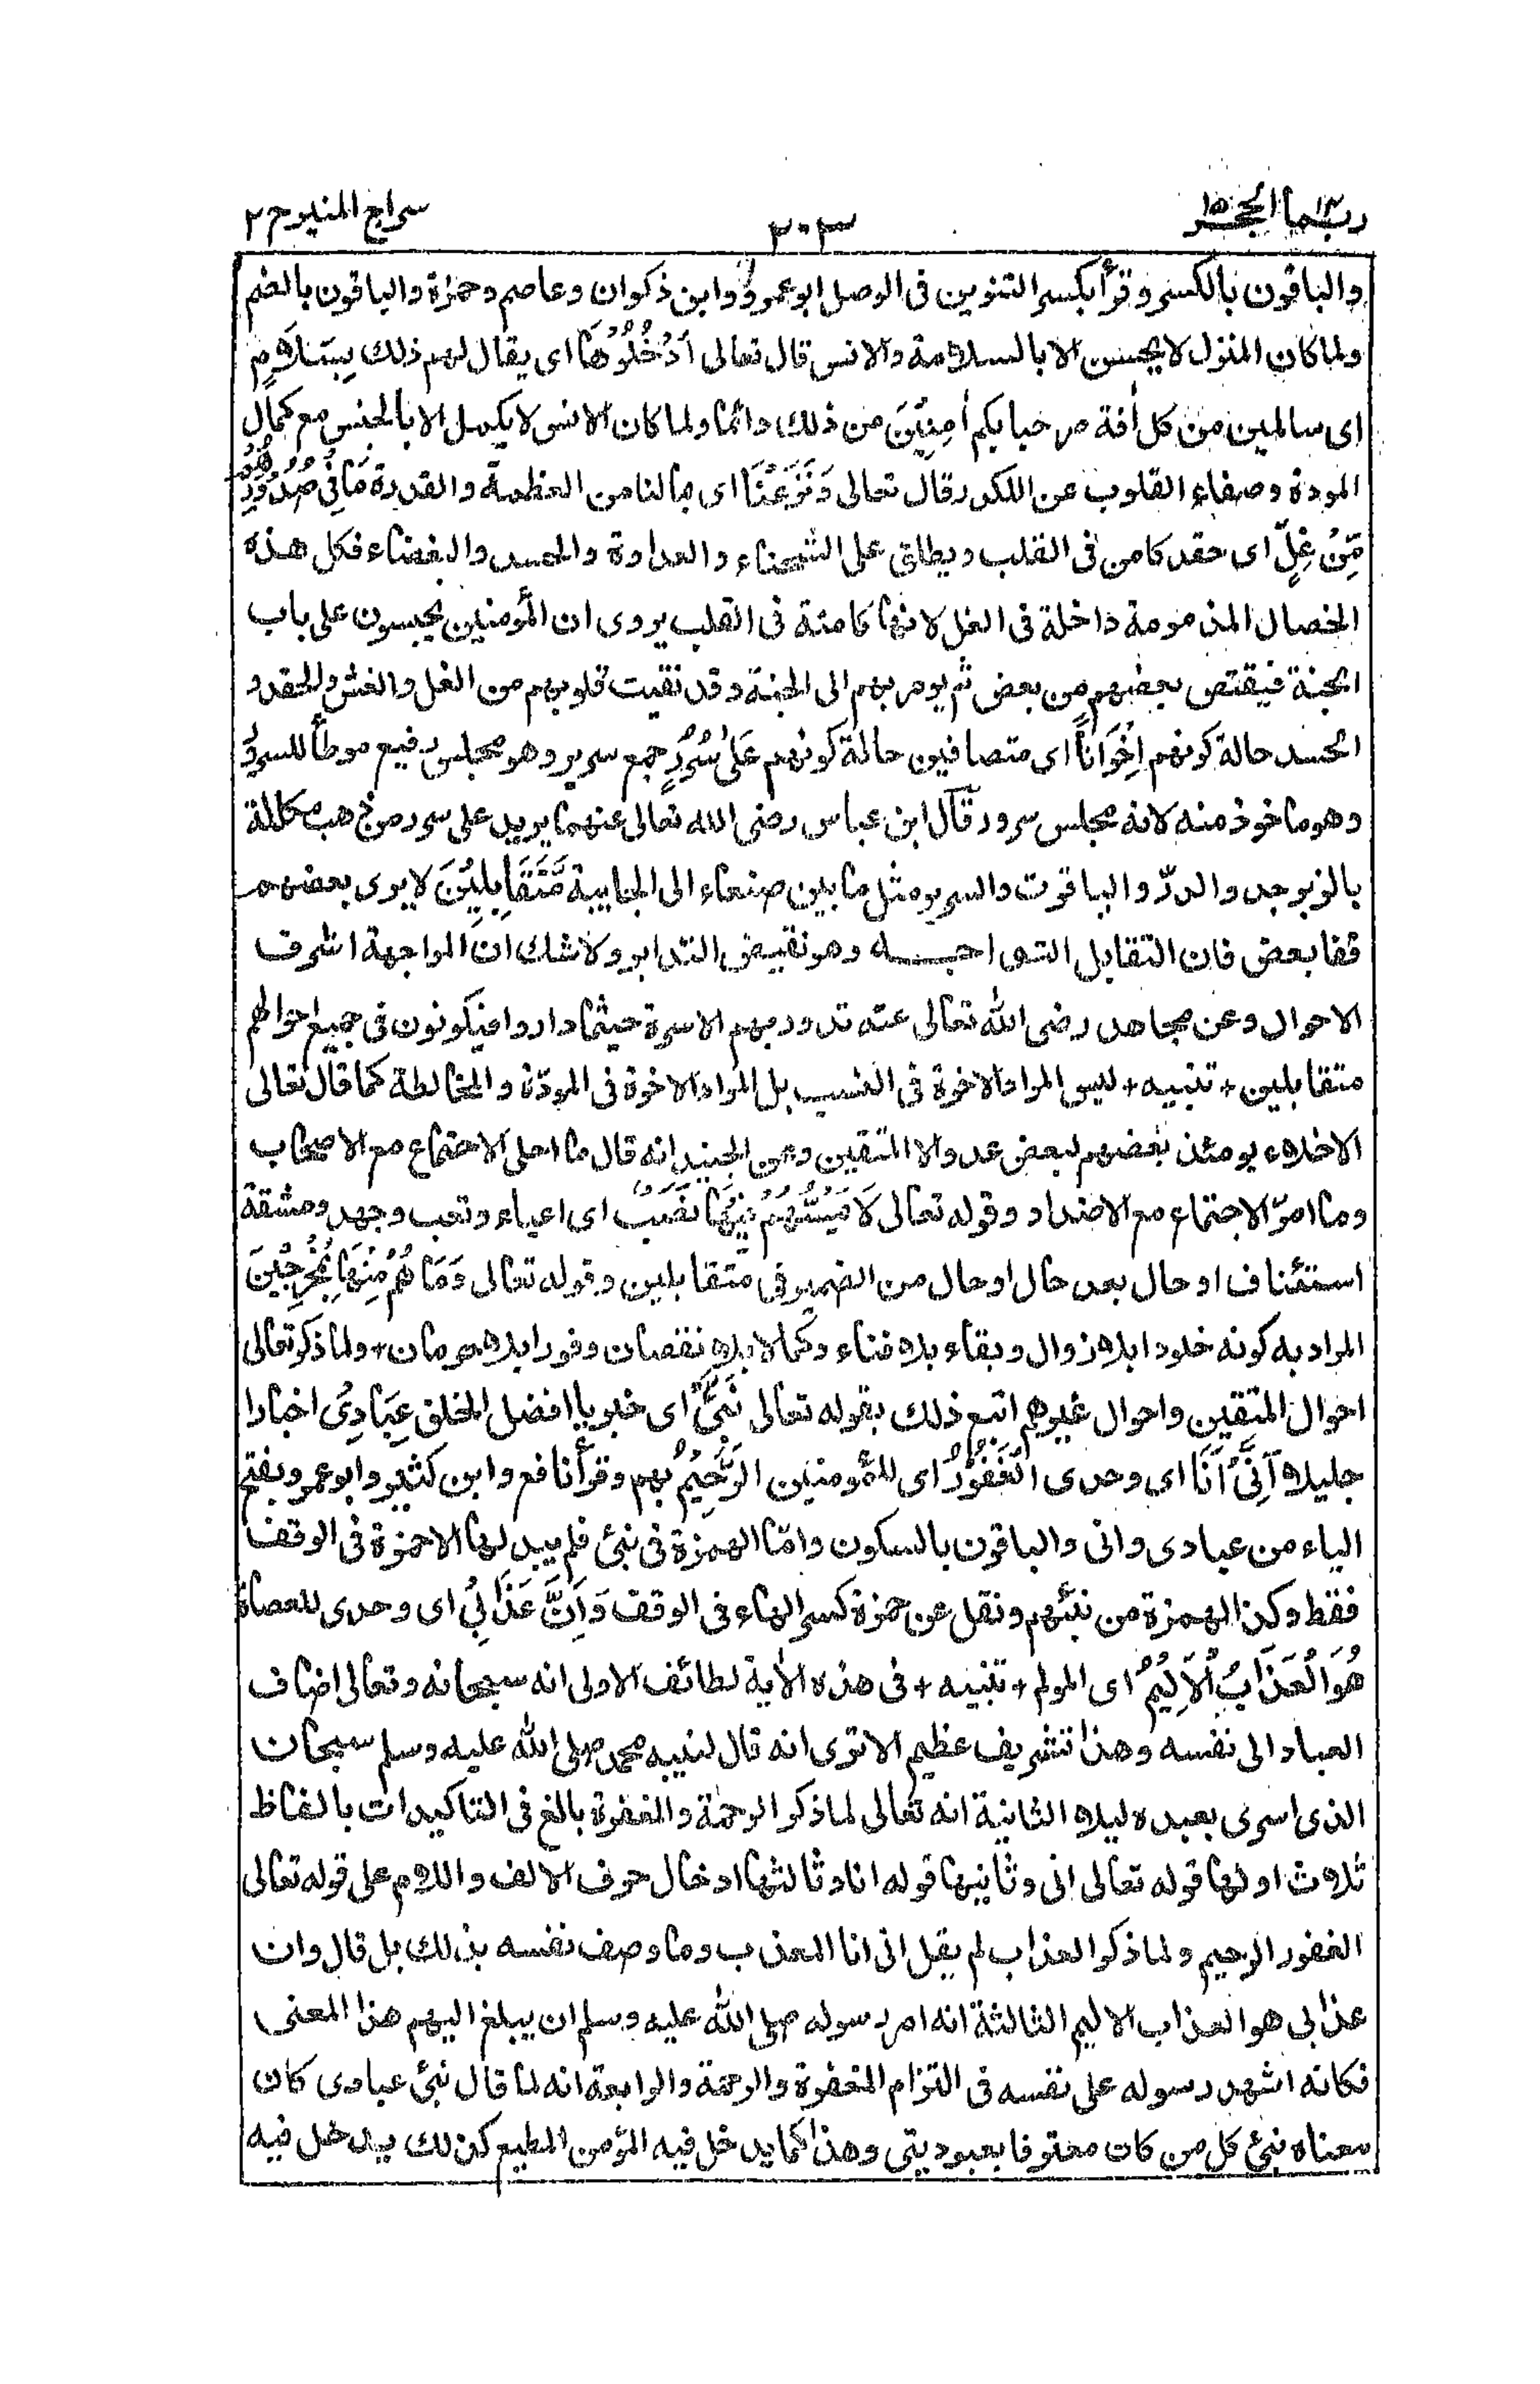 ربما ١٤ الحجر ١٥
٣٠٣
سراج المنير ج ٢
والباقون بالكسر وقرأ بكسر التنوين فى الوصل ابو عمرو وابن ذكوان وعاصم وحمزة والباقون بالضم
ولما كان المنزل لا يحسن الا بالسلامة والانس قال تعالى اُدْخُلُوْهَا اى يقال لهم ذلك بِسَلَامٍ
اى سالمين من كل أفة مرحبا بكم اٰمِنِيْنَ من ذلك دائما ولما كان الانس لا يكمل الا بالجنس مع كمال
المودة وصفاء القلوب عن الكدر قال تعالى وَنَزَعْنَا اى بما لنا من العظمة والقدرة مَا فِيْ صُدُوْرِهِمْ
مِّنْ غِلٍّ اى حقد كامن فى القلب ويطلق على الشحناء والعداوة والحسد والبغضاء فكل هذه
الخصال المذمومة داخلة فى الغل لانها كامنة فى القلب يروى ان المؤمنين يحبسون على باب
الجنة فيقتص بعضهم من بعض ثم يومر بهم الى الجنة وقد نقيت قلوبهم من الغل والغش والحقد و
الحسد حالة كونهم اِخْوَانًا اى متصافين حالة كونهم عَلٰى سُرُرٍ جمع سرير وهو مجلس رفيع موطأ للسرور
وهو ماخوذ منه لانه مجلس سرور قال ابن عباس رضى الله تعالى عنهما يريد على سرر من ذهب مكللة
بالزبرجد والدرّ والياقوت والسرير مثل ما بين صنعاء الى الجابية مُّتَقَابِلِيْنَ لا يرى بعضهم
قفا بعض فان التقابل التواجـــه وهو نقيض التدابر ولا شك ان المواجهة اشرف
الاحوال وعن مجاهد رضى الله تعالى عنه تدور بهم الاسرة حيثما داروا فيكونون فى جميع احوالهم
متقابلين + تنبيه + ليس المراد الاخوة فى النسب بل المراد الاخوة فى المودّة والمخالطة كما قال تعالى
الاخلاء يومئذ بعضهم لبعض عدو الا المتقين وعن الجنيد انه قال ما احلى الاجتماع مع الاصحاب
وما امرّ الاجتماع مع الاضداد وقوله تعالى لَا يَمَسُّهُمْ فِيْهَا نَصَبٌ اى اعياء وتعب وجهد ومشقة
استئناف او حال بعد حال او حال من الضمير فى متقابلين وقوله تعالى وَمَا هُمْ مِّنْهَا بِمُخْرَجِيْنَ
المراد به كونه خلودا بلا زوال وبقاء بلا فناء وكمالا بلا نقصان وفوزا بلا حرمان + ولما ذكر تعالى
احوال المتقين واحوال غيرهم اتبع ذلك بقوله تعالى نَبِّئْ اى خبر يا افضل الخلق عِبَادِيْ اخبارا
جليلا اَنِّيْ اَنَا اى وحدى الْغَفُوْرُ اى للمؤمنين الرَّحِيْمُ بهم وقرأ نافع وابن كثير وابو عمرو بفتح
الياء من عبادى وانى والباقون بالسكون وامّا الهمزة فى نبئ فلم يبدلها الا حمزة فى الوقف
فقط وكذا الهمزة من نبّئهم ونقل عن حمزة كسر الهاء فى الوقف وَاَنَّ عَذَابِيْ اى وحدى للعصاة
هُوَ الْعَذَابُ الْاَلِيْمُ اى المولم + تنبيه + فى هذه الأية لطائف الاولى انه سبحانه وتعالى اضاف
العباد الى نفسه وهذا تشريف عظيم الا ترى انه قال لنبيه محمد صلى الله عليه وسلم سبحان
الذى اسرى بعبده ليلا الثانية انه تعالى لما ذكر الرحمة والمغفرة بالغ فى التاكيدات بالفاظ
ثلاث اولها قوله تعالى انى وثانيها قوله انا وثالثها ادخال حرف الالف واللام على قوله تعالى
الغفور الرحيم ولما ذكر العذاب لم يقل انى انا المعذب وما وصف نفسه بذلك بل قال وان
عذابى هو العذاب الاليم الثالثة انه امر رسوله صلى الله عليه وسلم ان يبلغ اليهم هذا المعنى
فكانه اشهد رسوله على نفسه فى التزام المغفرة والرحمة والرابعة انه لما قال نبئ عبادى كان
معناه نبئ كل من كان معترفا بعبوديتى وهذا كما يدخل فيه المؤمن المطيع كذلك يدخل فيه